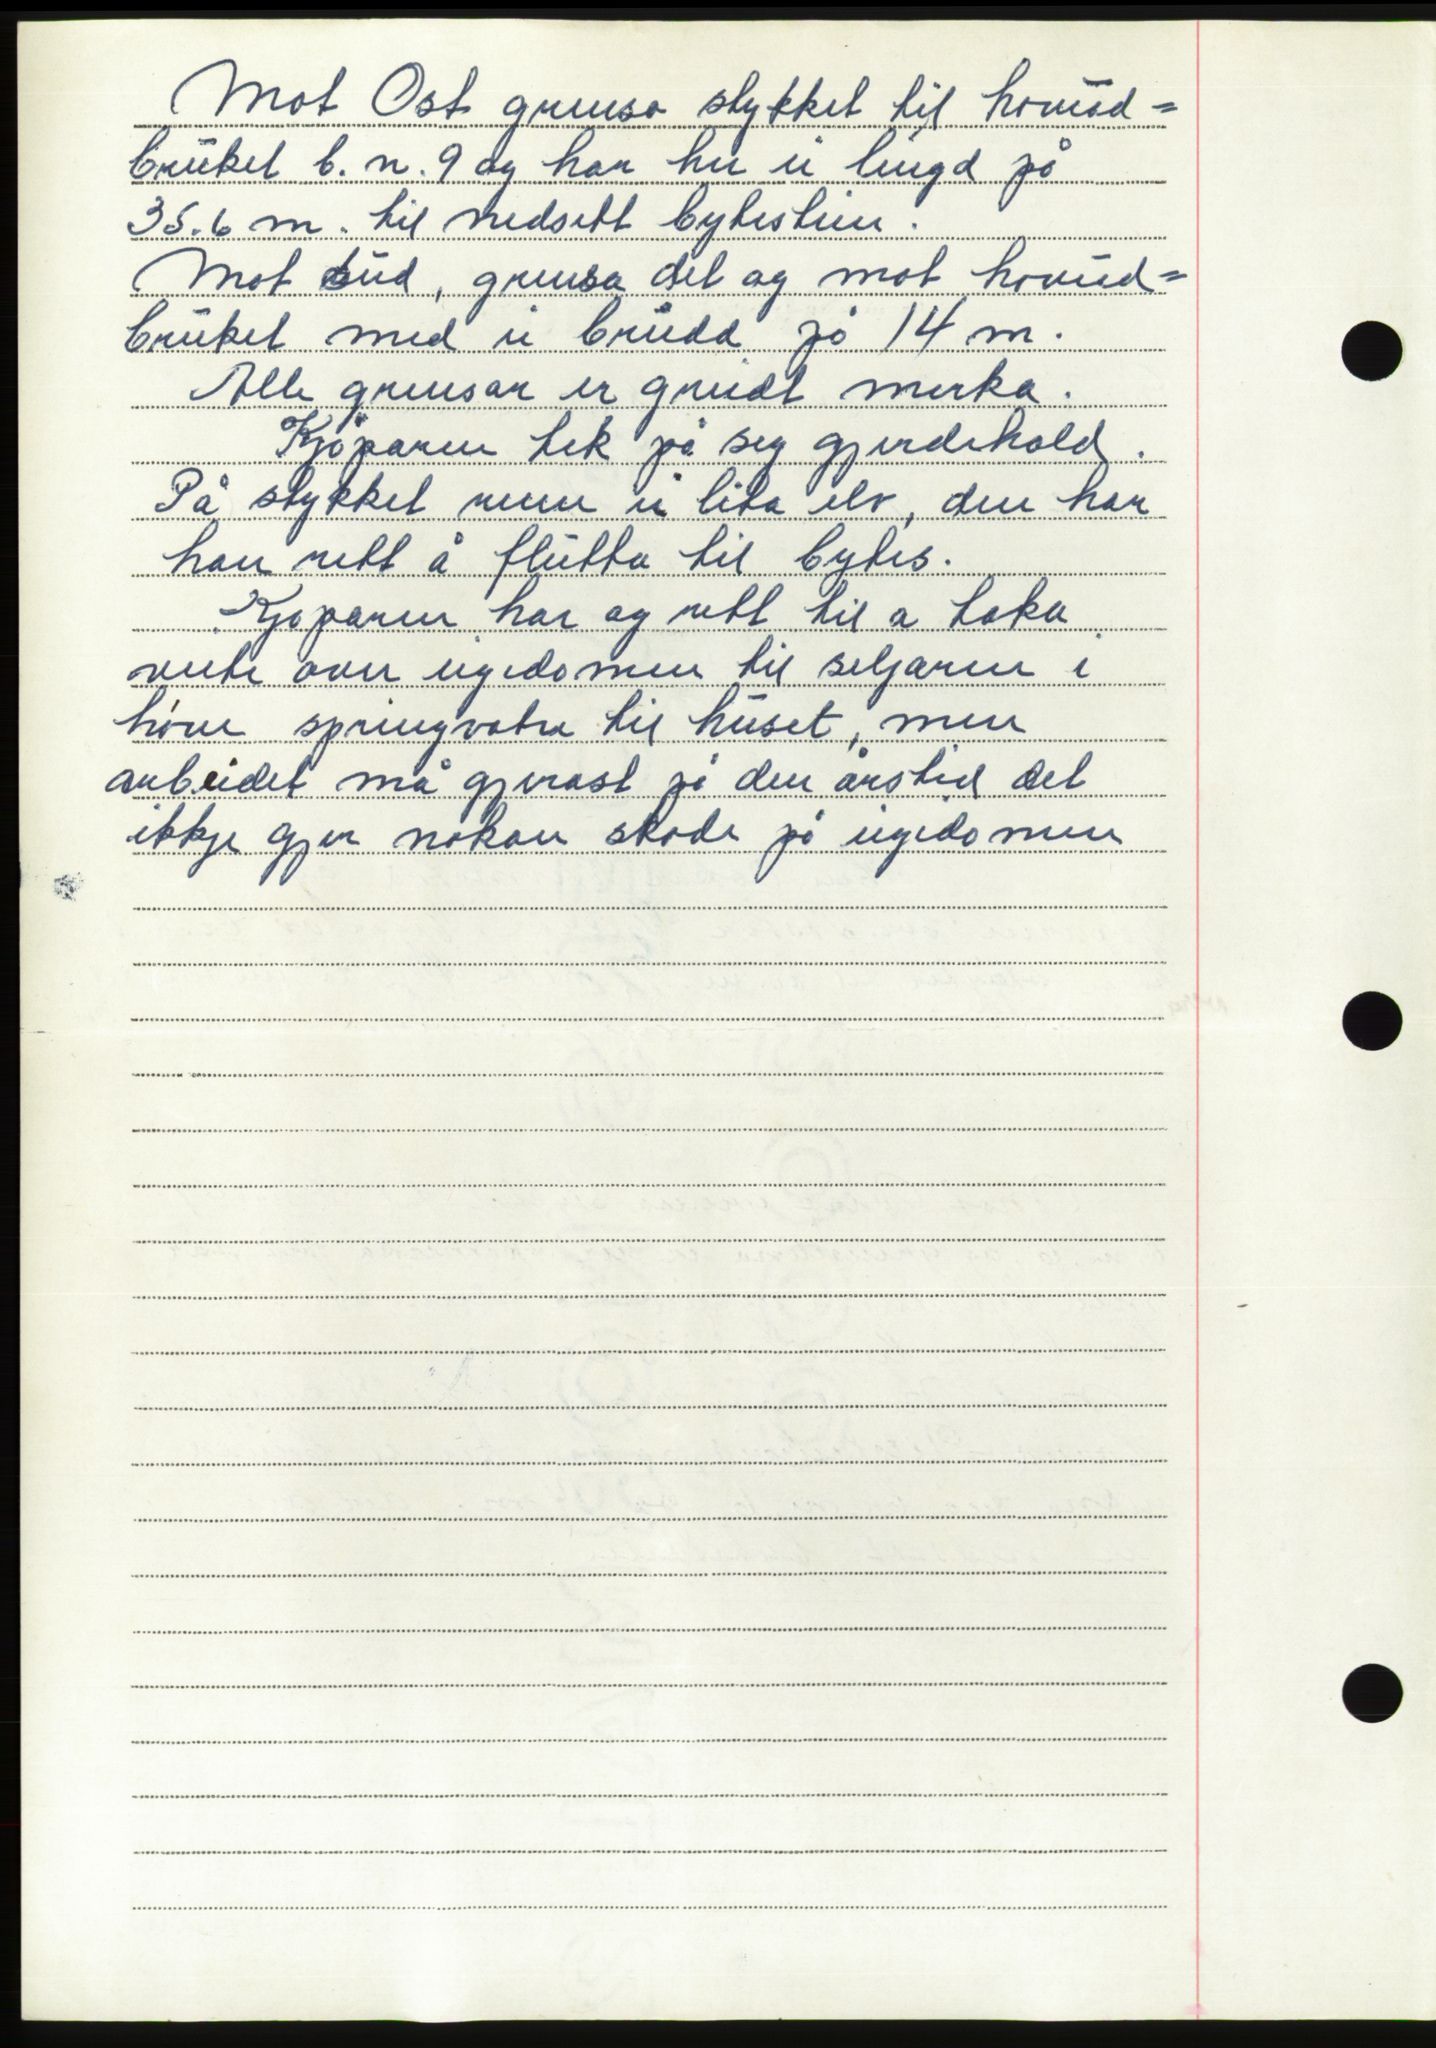 Mot Ost grensa stykket til hovud=
bruket b.n. 9 og har her ei lengd på
35.6 m. til nedsett bytestein.
Mot sud, grensa det og mot hovud=
bruket med ei breidd på 14 m.
Alle grensar er greidt merka.
Kjøparen tek på seg gjerdehald.
På stykket renn ei lita elv, den har
han rett å flutta til bytes.
Kjoparen har og rett til a taka
veite over eigedomen til seljaren i
høve springvatn til huset, men
arbeidet må gjerast på den årstid det
ikkje gjer nokon skade på eigedomen